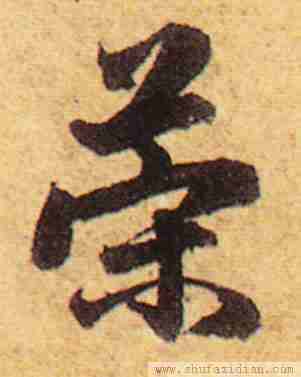 荣
www.shufazidian.com